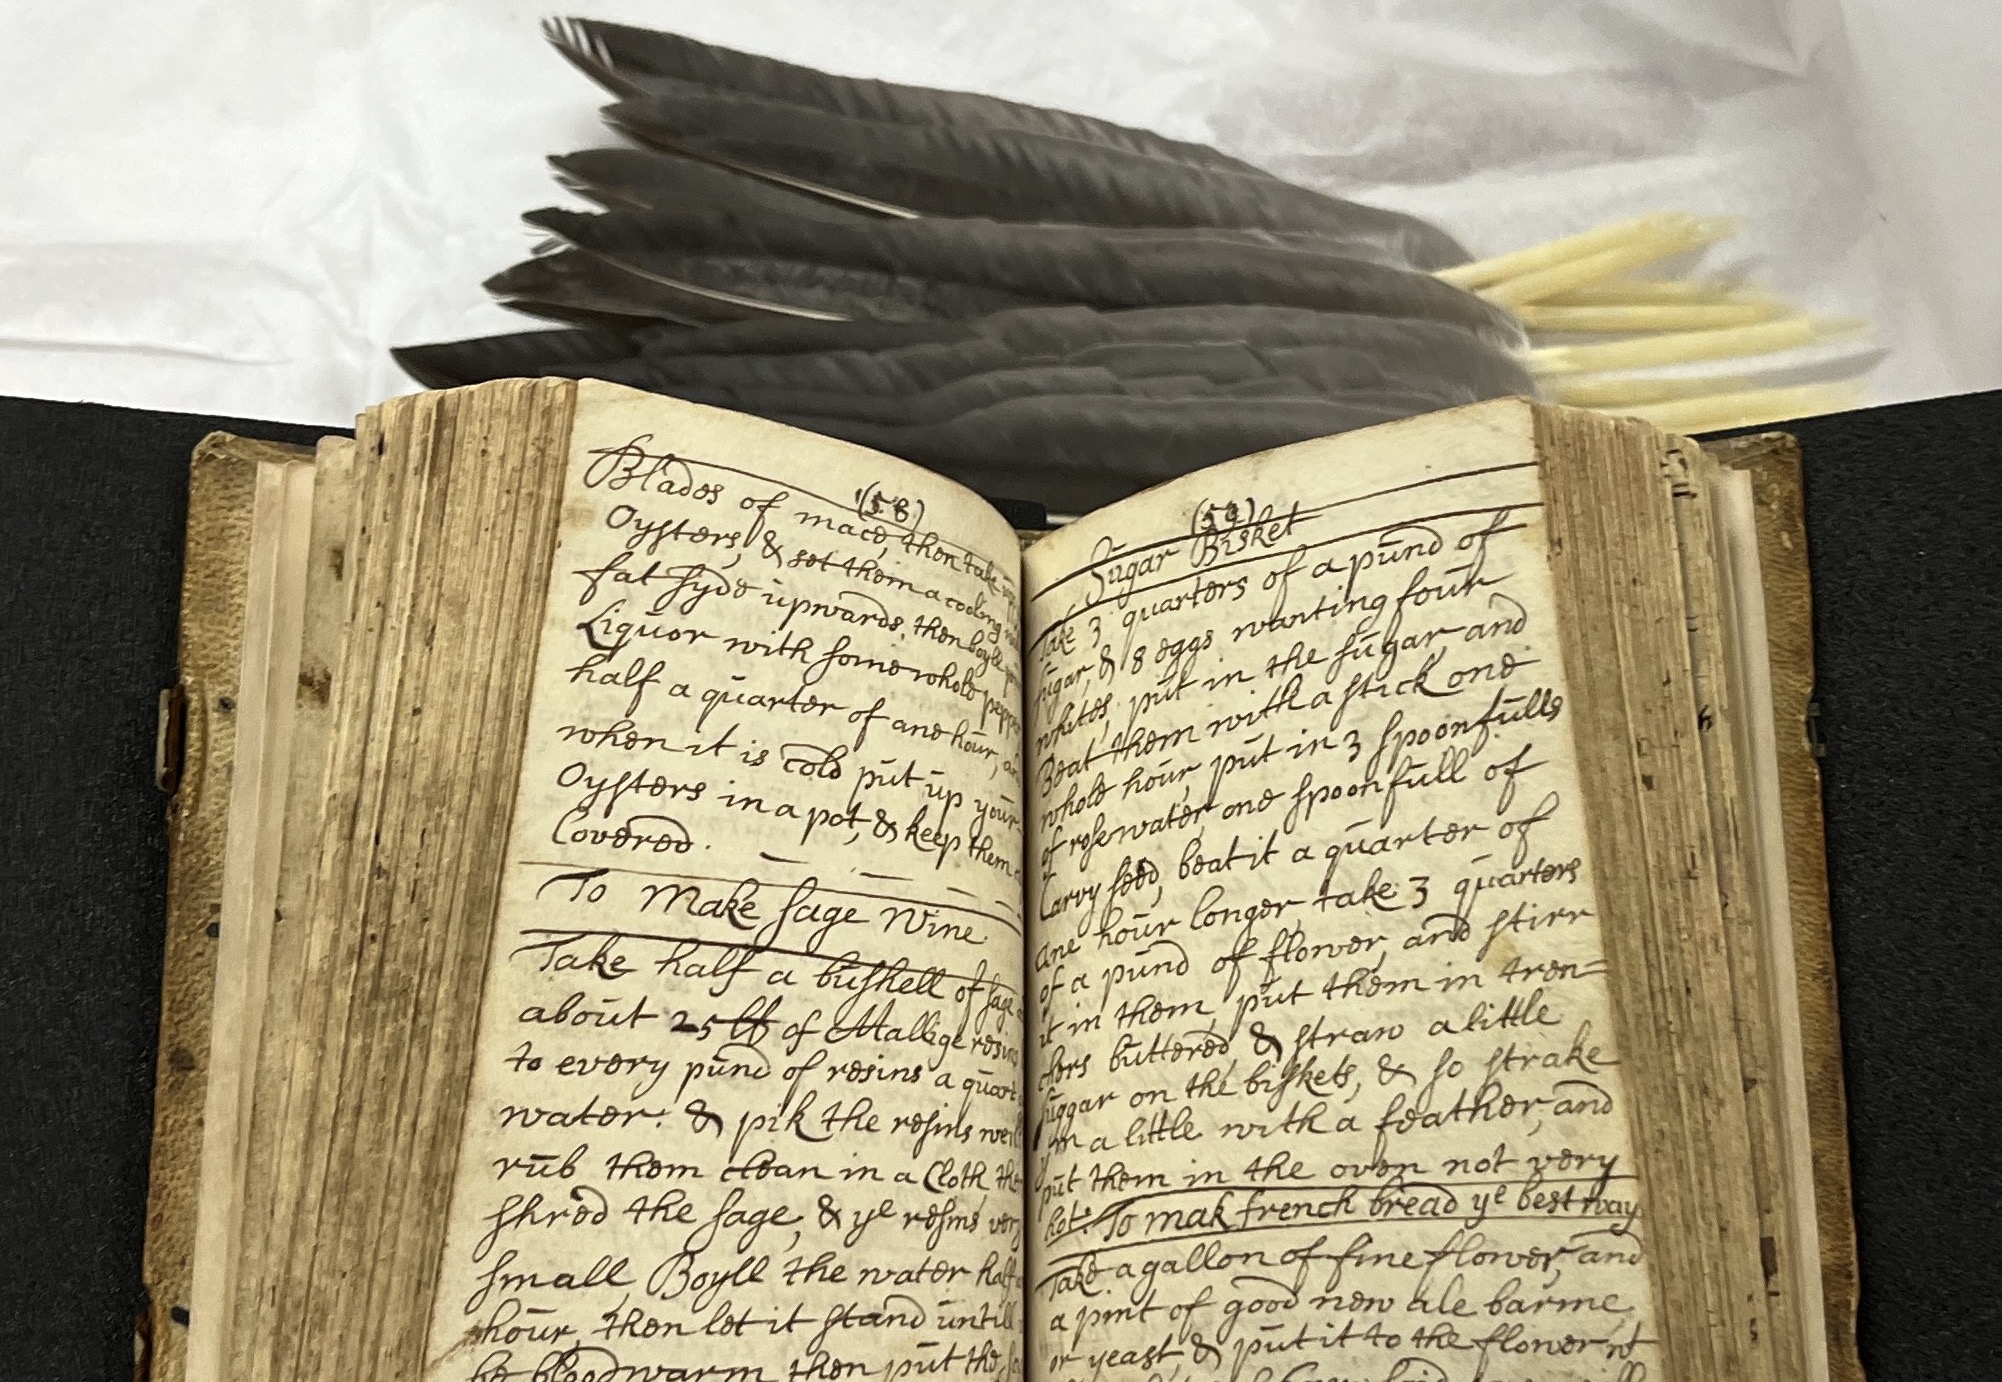 (58)
Blades of mace, then take
Oysters, & set them a cooling
fat syde upwards, then boyll
Liquor with some whole pepper
half a quarter of ane hour,
when it is cold put up your
Oysters in a pot, & keep them
Covered.
To Make sage Wine
Take half a bushell of sage
about 25 lb of Mallige resins
to every pund of resins a quart
water: & pik the resins well
rub them clean in a Cloth
shred the sage, & ye resins very
small, Boyll the water half
hour, then let it stand untill
be bloodwarm then put the
(59)
Sugar Bisket
Take 3 quarters of a pund of
sugar, & 8 eggs wanting four
whites, put in the sugar, and
Beat them with a stick one
whole hour, put in 3 spoonfulls
of rose water, one spoonfull of
Carvy seed, beat it a quarter of
ane hour longer, take 3 quarters
of a pund of flower, and stirr
it in them, put them in tren=
chers buttered, & straw a little
suggar on the biskets, & so strake
ym a little with a feather, and
put them in the oven not very
hot: To mak french bread ye best way
Take a gallon of fine flower, and
a pint of good new ale barme,
or yeast, & put it to the flower wt